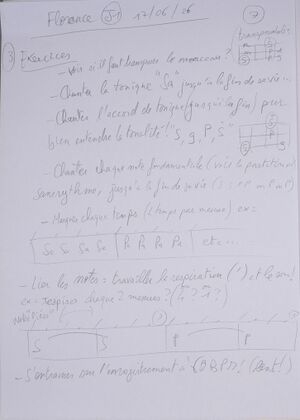 Florence J-1 17/06/26
7
3 Exercices
transposable
- Voir s'il faut transposer le morceau ?
- Chanter la tonique "Sa" jusqu'à la fin de sa vie...
- Chanter l'accord de tonique (jusqu'à la fin) pour
bien entendre la tonalité ! "S, g, P, S"
- Chanter chaque note fondamentale (voir la partition)
sans rythme, jusqu'à la fin de sa vie
- Marquer chaque temps (4 temps par mesure) ex =
Sa Sa Sa Sa | Pa Pa Pa Pa | etc...
- Lier les notes = travailler la respiration (') et le son !
ex = respirer chaque 2 mesures ?
S S P P
- S'entraîner sur l'enregistrement à BPM ! (Lent !)